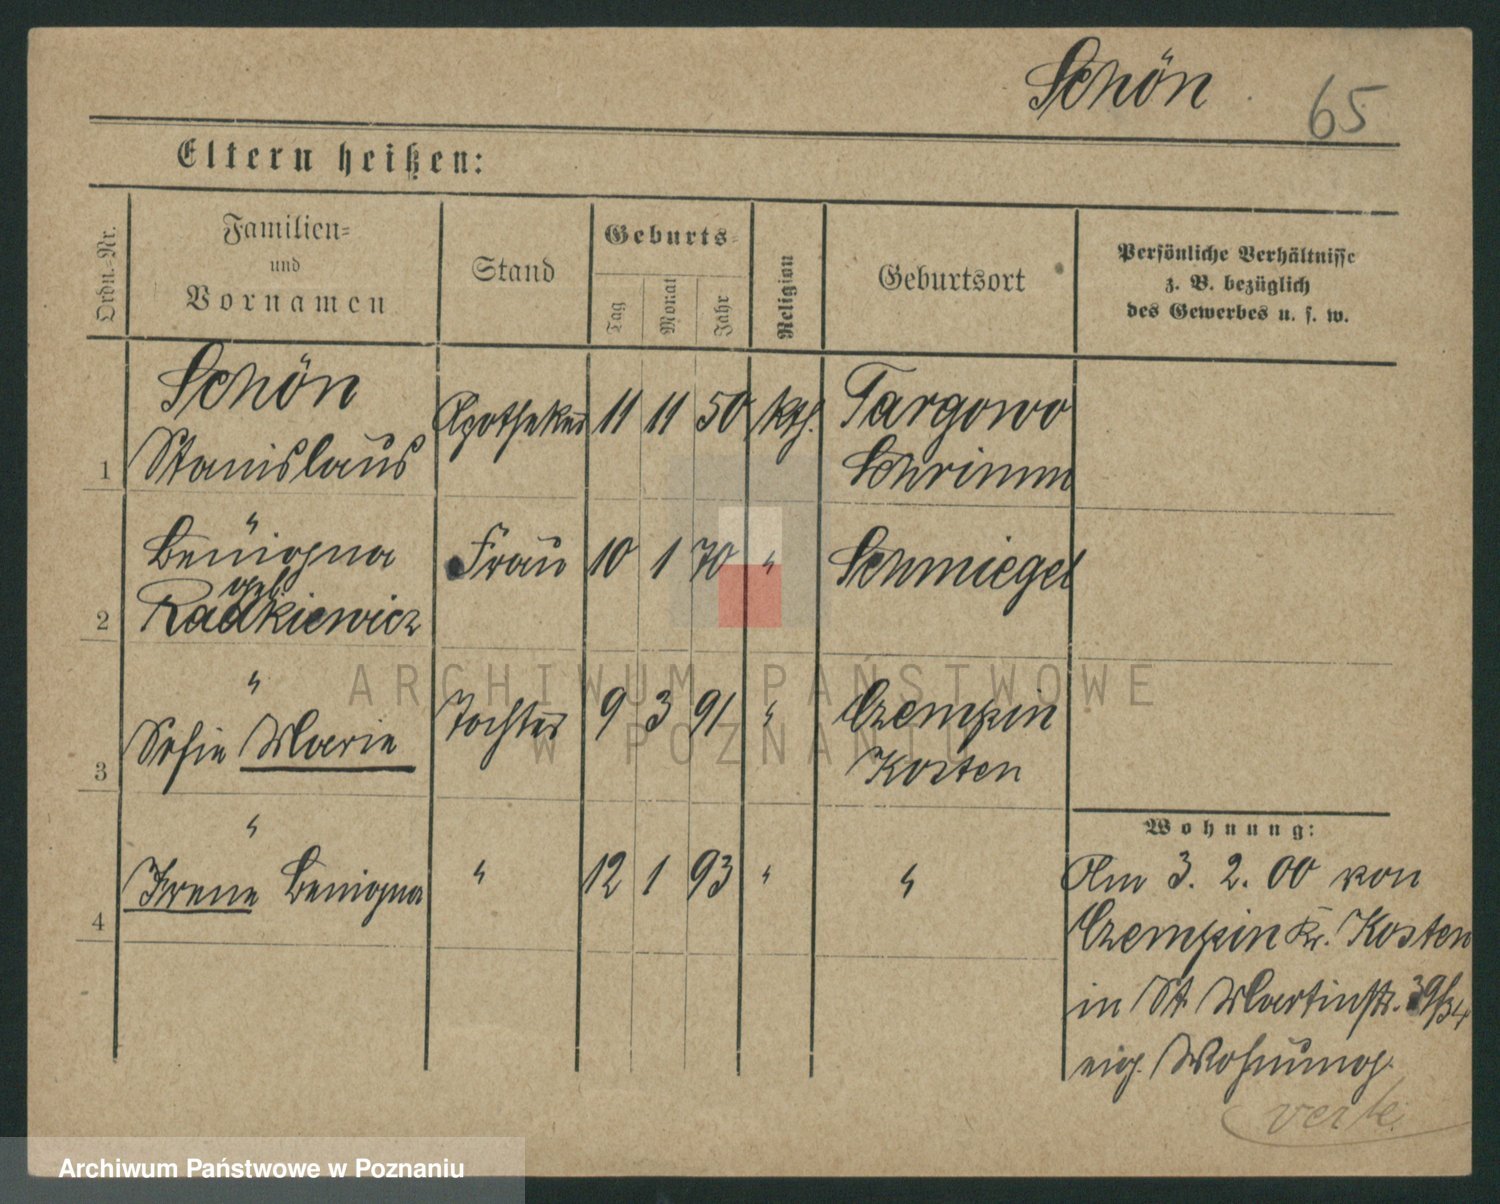 Schön
65
Eltern heißen:
Ordn.-Nr.
Familien-
und
Vornamen
Stand
Geburts-
Tag
Monat
Jahr
Religion
Geburtsort
Persönliche Verhältnisse
z. B. bezüglich
des Gewerbes u. s. w.
Schön
Stanislaus
1
Apotheker
11 11 50 kth.
Targowo
Schrimm
"
Benigna
geb.
Radkiewicz
2
Frau
10 1 70 "
Schmiegel
"
Sofie Marie
3
Tochter
9 3 91 "
Czempin
Kosten
"
Irene Benigna
4
"
12 1 93 "
"
Wohnung:
Am 3. 2. 00 von
Czempin Kr. Kosten
in St. Martinstr.
eig. Wohnung.
ARCHIWUM PAŃSTWOWE
W POZNANIU
Archiwum Państwowe w Poznaniu